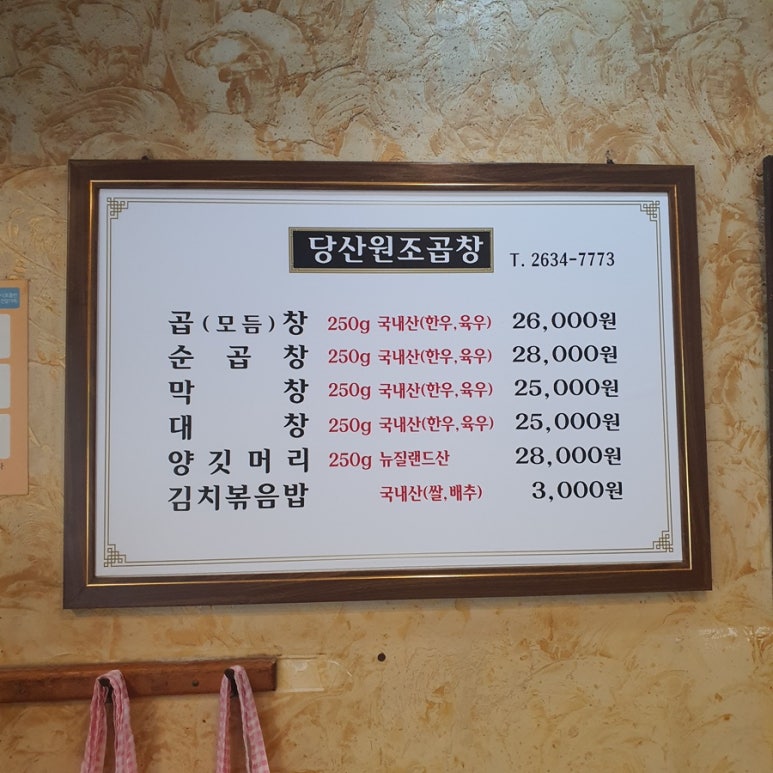 당산원조곱창 T. 2634-7773
곱(모듬)창 250g 국내산(한우,육우) 26,000원
순곱창 250g 국내산(한우,육우) 28,000원
막창 250g 국내산(한우,육우) 25,000원
대창 250g 국내산(한우,육우) 25,000원
양깃머리 250g 뉴질랜드산 28,000원
김치볶음밥 국내산(쌀,배추) 3,000원